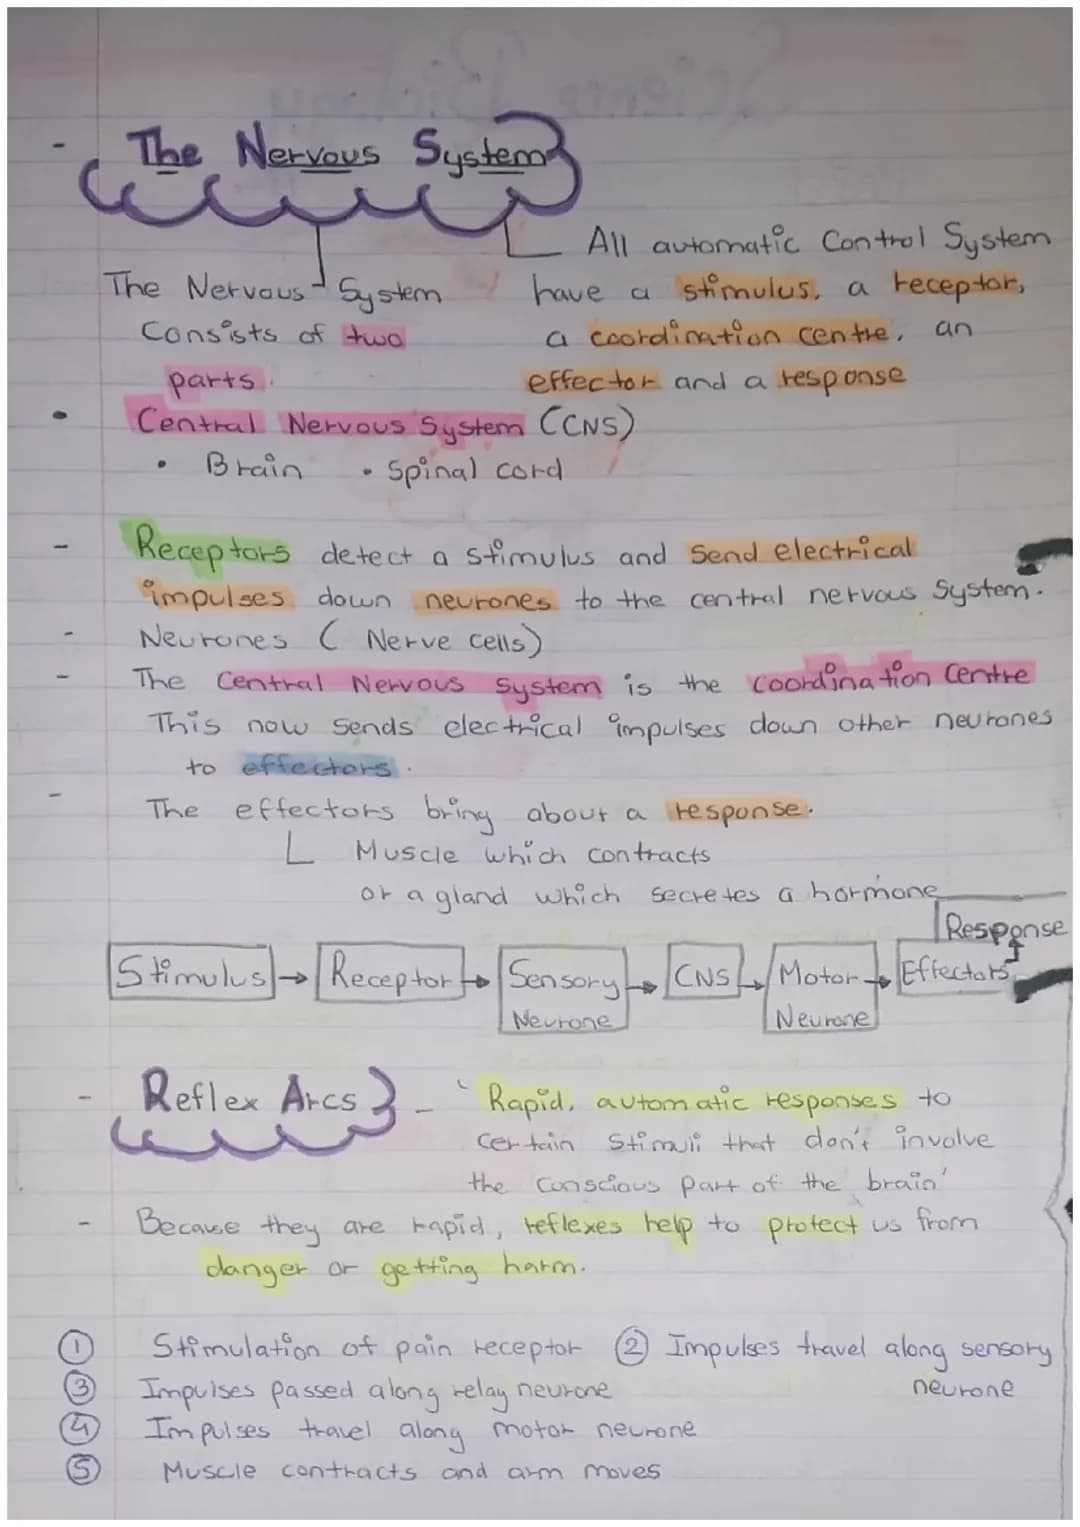 The Nervous System
All automatic Control System
have a stimulus, a receptor,
a coordination centre, an
effector and a response
The Nervous System
Consists of two
parts.
Central Nervous System (CNS)
• Brain • Spinal cord
- Receptors detect a stimulus and send electrical
impulses down neurones to the central nervous System.
- Neurones ( Nerve cells)
- The Central Nervous System is the coordination centre
This now sends electrical impulses down other neurones
to effectors.
- The effectors bring about a response.
Muscle which contracts
or a gland which secretes a hormone
Response
Stimulus → Receptor → Sensory Neurone → CNS → Motor Neurone → Effectors
- Reflex Arcs - 'Rapid, automatic responses to
certain stimuli that don't involve
the conscious part of the brain'
- Because they are rapid, reflexes help to protect us from
danger or getting harm.
① Stimulation of pain receptor ② Impulses travel along sensory
neurone
③ Impulses passed along relay neurone
④ Impulses travel along motor neurone
⑤ Muscle contracts and arm moves